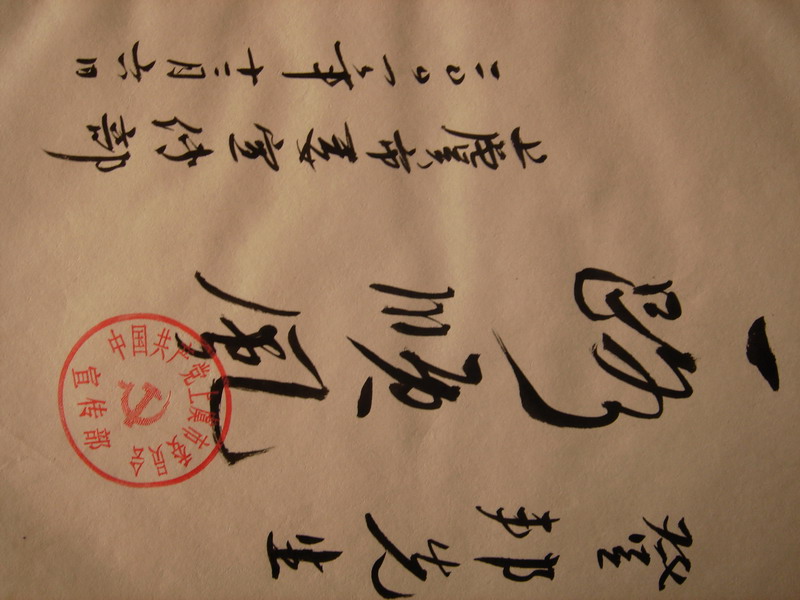 登邦先生
一路顺风
上虞市委宣传部
二〇〇一年十二月六日
中国共产党上虞市委员会
宣传部